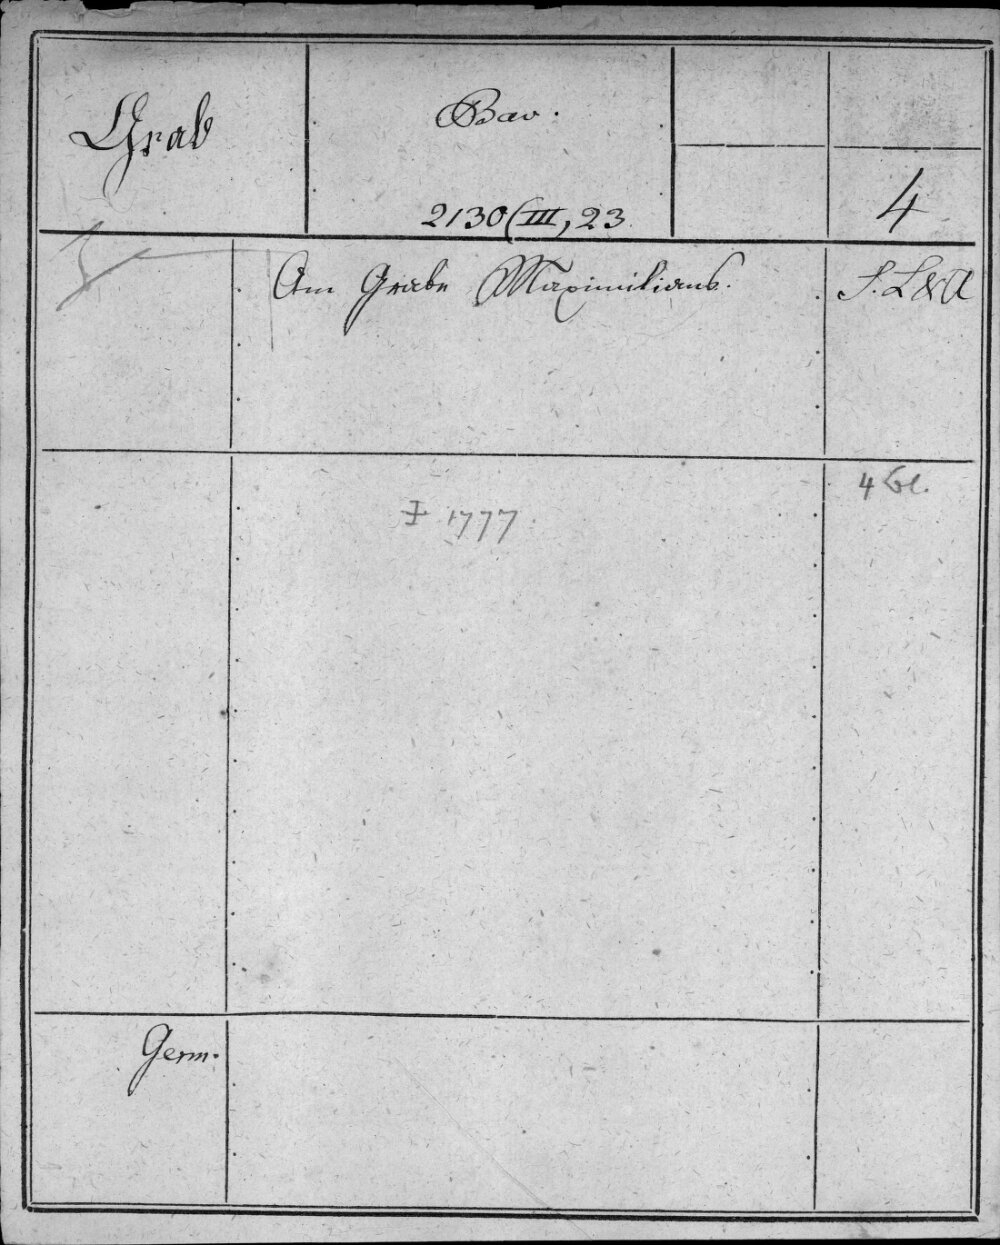 Grab
Bav.
2130(III, 23
4
Am Grabe Maximilians.
S. L & A
4 Bl.
1777
Germ.